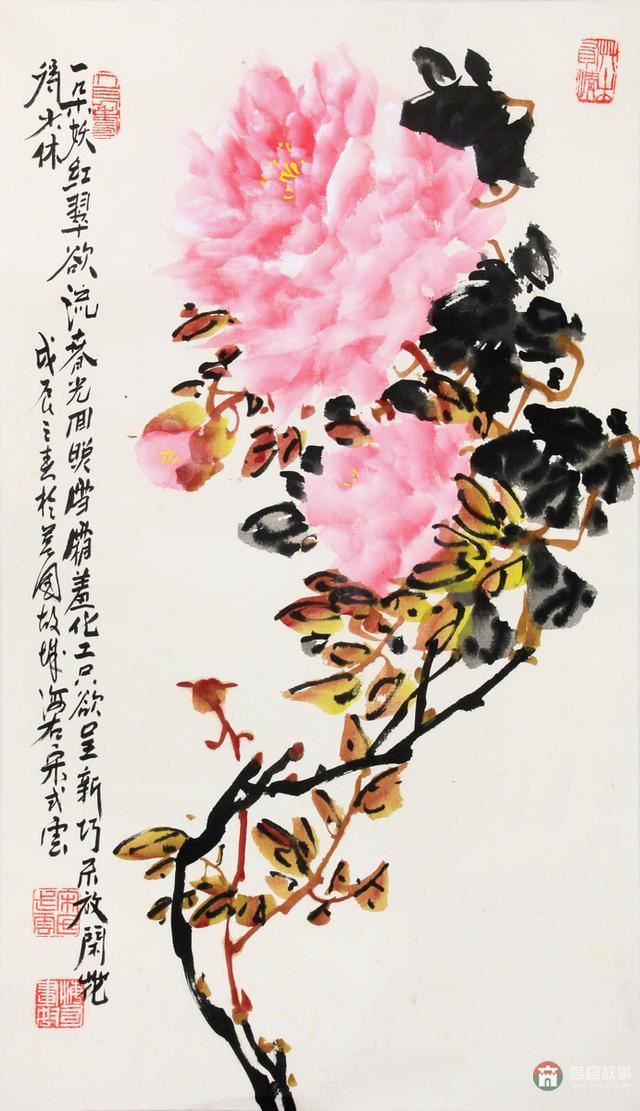 一朵妖紅翠欲流春光回照雪霜羞化工只欲呈新巧不放閑花
得少休
戊辰之春於莒國故城海右宋式雲
莒县故事